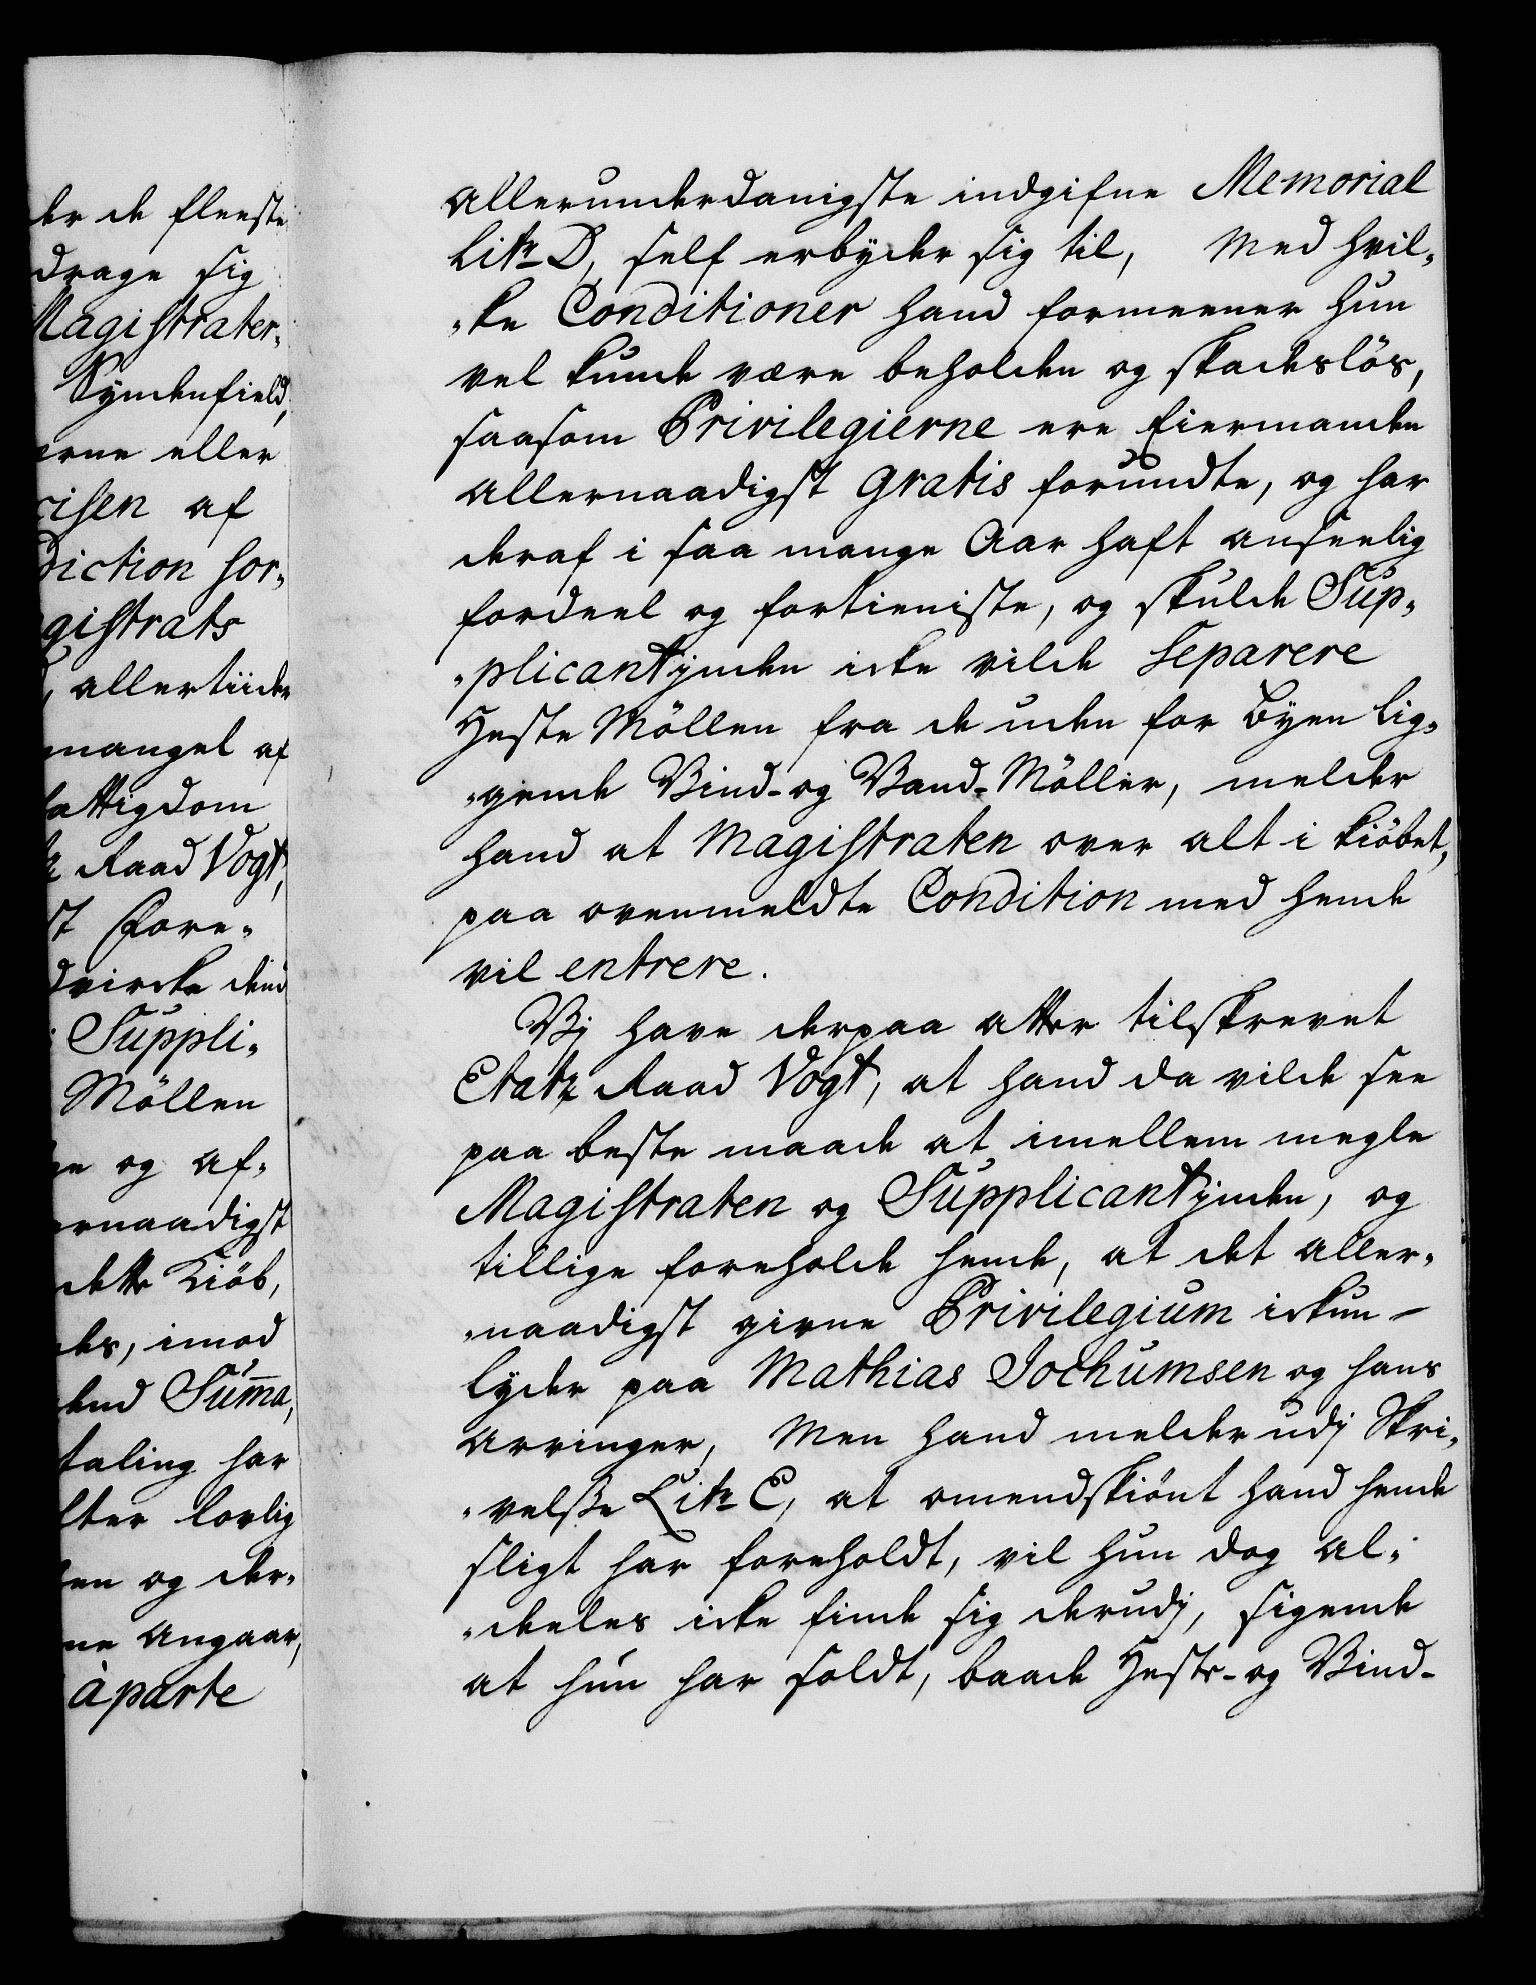 der de fleeste
drage sig
Magistrater,
Syndenfield,
erne eller
risen af
Diction hor„
gistrats
, allertiider
mangel af
fattigdom
Raad Vogt,
st Fore„
dvircke dend
Suppli„
Möllen
ge og af„
ernaadigst
dette Kiöb,
des, imod
dend Sum̄a,
taling har
lter lovlig
en og der„
ne angaar,
àparte
allerunderdanigste indgifne Memorial
Litr D, self erbyder sig til, Med hvil„
„ke Conditioner hand formeener hun
vel kunde være beholden og skadeslös,
saasom Privilegierne ere Eiermanden
allernaadigst gratis forundte, og har
deraf i saa mange Aar haft anseelig
fordeel og fortieniste, og skulde Sup„
„plicantjnden icke vilde separere
Heste Möllen fra de uden for Byen lig„
„gende Vind- og Vand-Möller, melder
hand at Magistraten over alt i Kiöbet,
paa ovenmeldte Condition med hende
vil entrere.
Vj have derpaa atter tilskrevet
Etatz Raad Vogt, at hand da vilde see
paa beste maade at imellem megle
Magistraten og Supplicantjnden, og
tillige foreholde hende, at det aller„
„naadigst givne Privilegium ickun
lyder paa Mathias Jochumsen og hans
arvinger, Men hand melder udj Skri„
„velße Litr E, at omendskiönt hand hende
sligt har foreholdt, vil hun dog al„
„deeles icke finde sig derudj, sigende
at hun har soldt, baade Heste- og Vind-